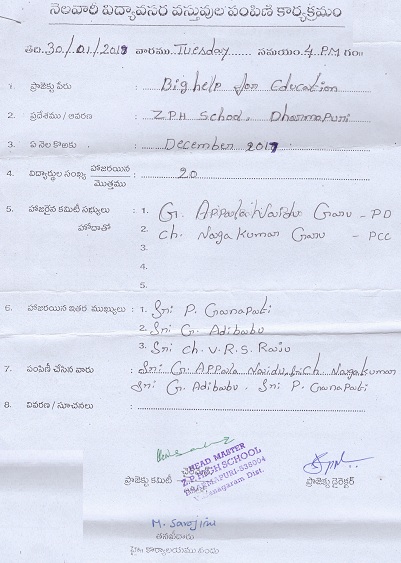 నెలవారీ విద్యావసర వస్తువుల పంపిణీ కార్యక్రమం
తేది.30/01/2018 వారము Tuesday సమయం: 4 P.M గం॥
1. ప్రాజెక్టు పేరు : Bighelp for Education
2. ప్రదేశము / ఆవరణ : Z.P.H School, Dharmapuri
3. ఏ నెల కొఱకు : December 2017
4. విద్యార్థుల సంఖ్య హాజరయిన మొత్తము : 20
5. హాజరైన కమిటీ సభ్యులు హోదాతో : 1. G. Appala Naidu Garu - PD
2. Ch. Naga Kumar Garu - PCC
3.
4.
5.
6. హాజరయిన ఇతర ముఖ్యులు : 1. Sri P. Ganapati
2. Sri G. Adibabu
3. Sri Ch. V.R.S. Raju
7. పంపిణీ చేసిన వారు : Sri G. Appala Naidu, Sri Ch. Nagakumar
Sri G. Adibabu, Sri P. Ganapati
8. వివరణ / సూచనలు :
HEAD MASTER
Z.P. HIGH SCHOOL
DHARMAPURI-535004
Vizianagaram Dist.
ప్రాజెక్టు కమిటీ చైర్మన్
ప్రాజెక్టు డైరెక్టర్
M. Sarojini